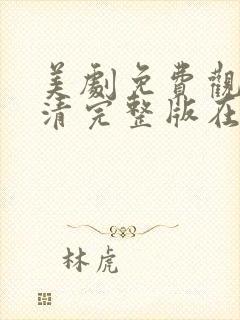 美劇免費觀
清完整版在
林虎